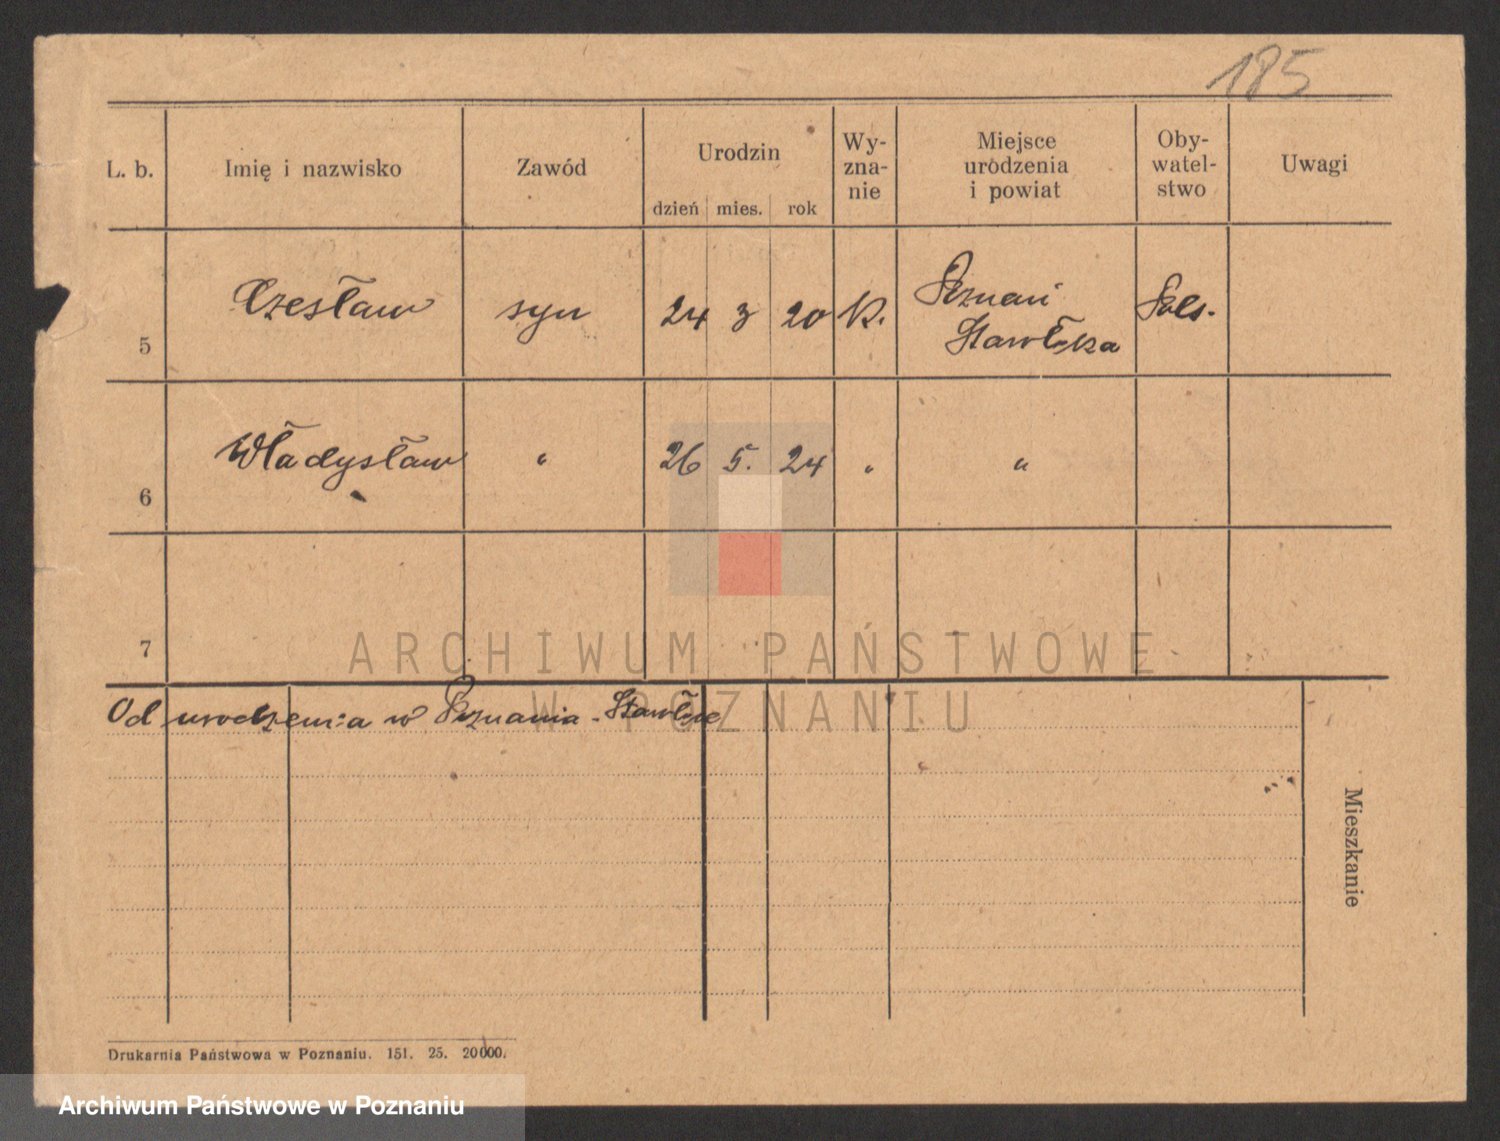 185
L. b.
Imię i nazwisko
Zawód
Urodzin
dzień mies. rok
Wy-
zna-
nie
Miejsce
urodzenia
i powiat
Oby-
watel-
stwo
Uwagi
5 Czesław syn 24 3 20 K. Poznań Pols.
Starołęka
6 Władysław " 26 5. 24 " "
7
Od urodzenia w Poznaniu - Starołęce
Mieszkanie
Drukarnia Państwowa w Poznaniu. 151. 25. 20000.
ARCHIWUM PAŃSTWOWE
W POZNANIU
Archiwum Państwowe w Poznaniu